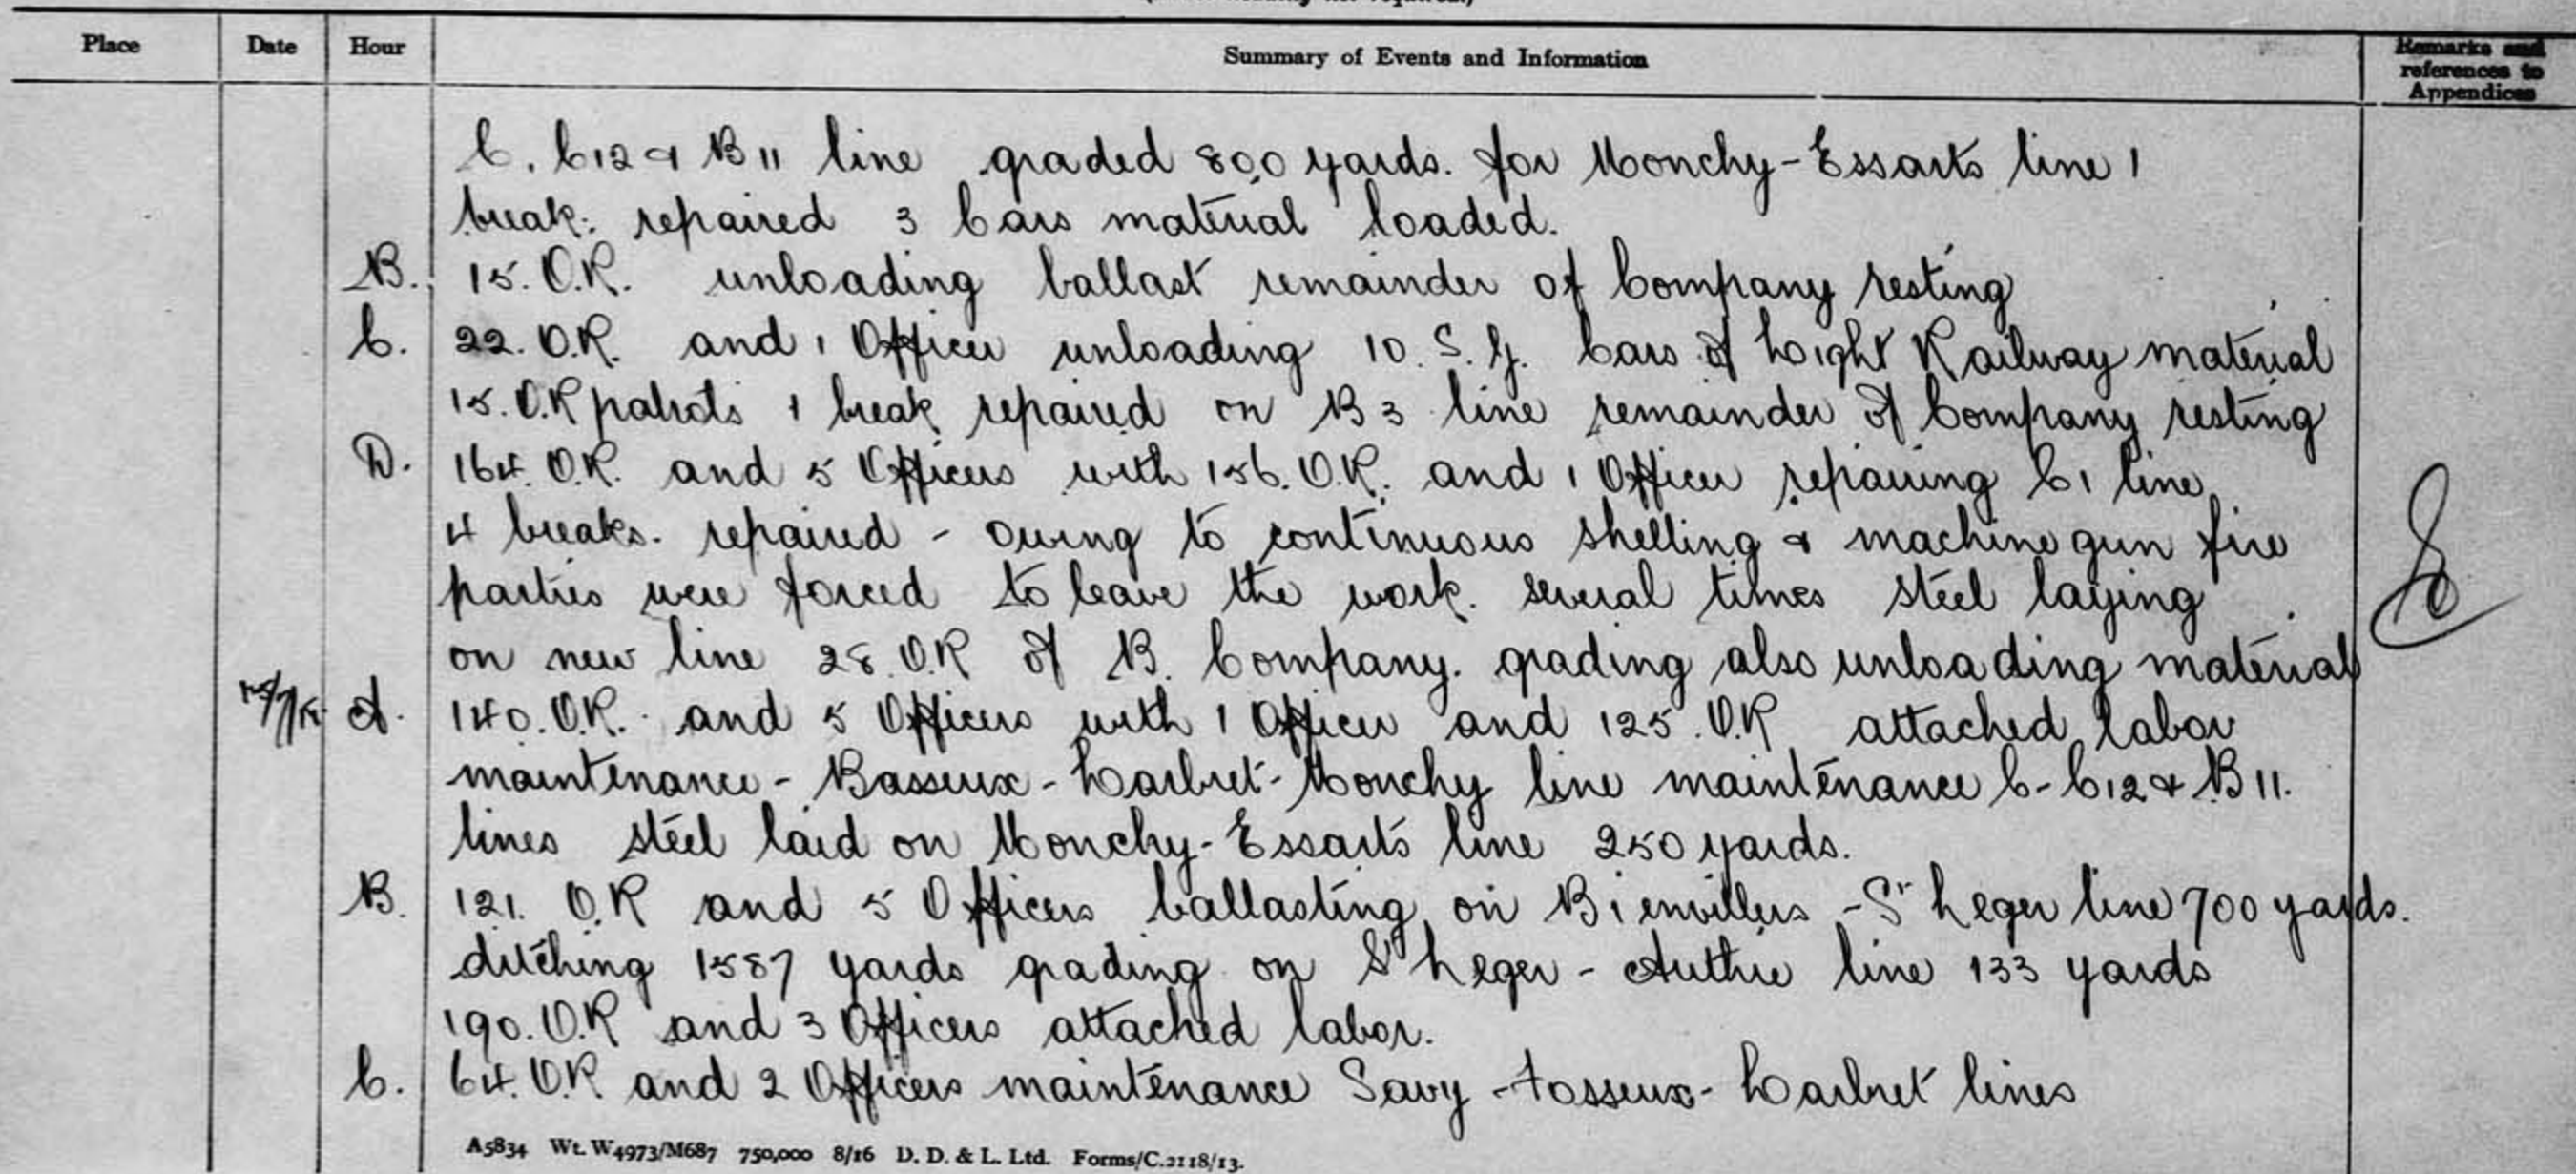 Place Date Hour Summary of Events and Information Remarks and references to Appendices
C. C12 & B11 line graded 800 yards. for Monchy-Essarts line 1
break. repaired 3 Cars material loaded.
B. 15. O.R. unloading ballast remainder of Company resting
C. 22. O.R. and 1 Officer unloading 10. S.G. Cars of Light Railway material
15. O.R patrols 1 break repaired on B3 line remainder of Company resting
D. 164. O.R. and 5 Officers with 156. O.R. and 1 Officer repairing C1 line
4 breaks. repaired - owing to continuous shelling & machine gun fire
parties were forced to leave the work. several times steel laying
on new line 28. O.R of B. Company. grading also unloading material
A. 140. O.R. and 5 Officers with 1 Officer and 125. O.R attached labor
maintenance - Basseux - Larbret - Monchy line maintenance C - C12 & B11.
lines steel laid on Monchy - Essarts line 250 yards.
B. 121. O.R and 5 Officers ballasting on Bienvillers - St Leger line 700 yards.
ditching 1587 yards grading on St Leger - Authie line 133 yards
190. O.R and 3 Officers attached labor.
C. 64. O.R and 2 Officers maintenance Savy - Fosseux - Larbret lines
A5834 Wt. W4973/M687 750,000 8/16 D. D. & L. Ltd. Forms/C.2118/13.